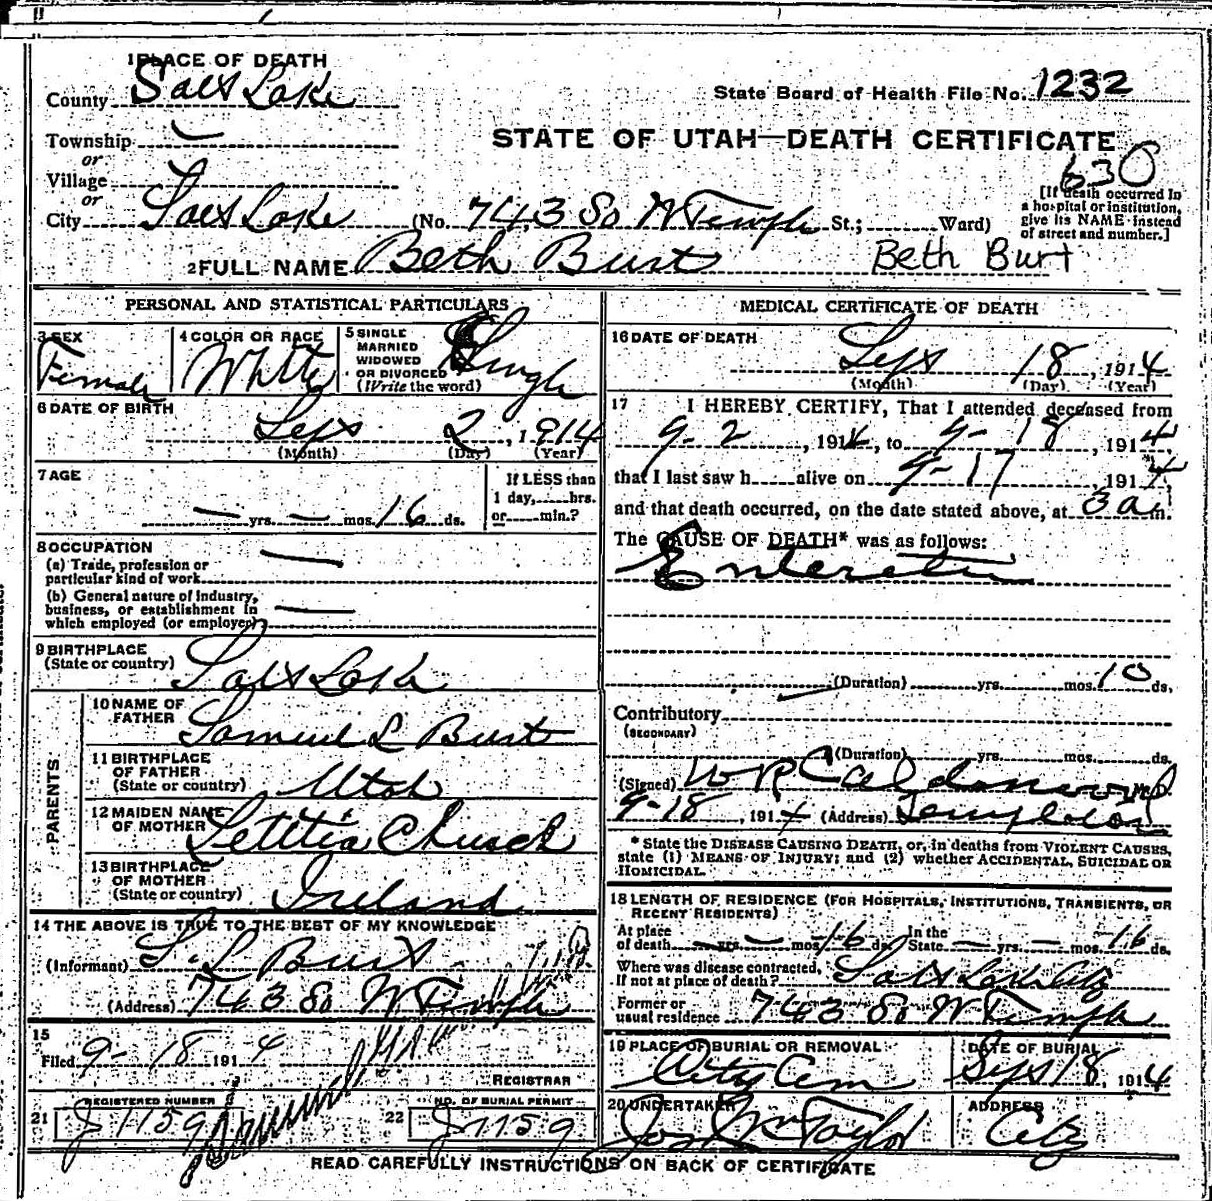 1 PLACE OF DEATH
County Salt Lake
State Board of Health File No. 1232
Township
or
Village
or
STATE OF UTAH—DEATH CERTIFICATE
630
City Salt Lake (No. 743 So W Temple St.; Ward)
[If death occurred in
a hospital or institution,
give its NAME instead
of street and number.]
2 FULL NAME Beth Burt Beth Burt
PERSONAL AND STATISTICAL PARTICULARS
3 SEX
Female
4 COLOR OR RACE
White
5 SINGLE
MARRIED
WIDOWED
OR DIVORCED
(Write the word)
Single
6 DATE OF BIRTH
Sept 2, 1914
(Month) (Day) (Year)
7 AGE
— yrs. — mos. 16 ds.
If LESS than
1 day, hrs.
or min.?
8 OCCUPATION
(a) Trade, profession or
particular kind of work
(b) General nature of industry,
business, or establishment in
which employed (or employer)
9 BIRTHPLACE
(State or country)
Salt Lake
PARENTS
10 NAME OF
FATHER
Samuel L Burt
11 BIRTHPLACE
OF FATHER
(State or country)
Utah
12 MAIDEN NAME
OF MOTHER
Letitia Church
13 BIRTHPLACE
OF MOTHER
(State or country)
Ireland
14 THE ABOVE IS TRUE TO THE BEST OF MY KNOWLEDGE
(Informant) S. L Burt
(Address) 743 So W Temple
15
Filed 9-18 1914
REGISTRAR
21 REGISTERED NUMBER
J 1159
22 NO. OF BURIAL PERMIT
J 1159
MEDICAL CERTIFICATE OF DEATH
16 DATE OF DEATH
Sept 18, 1914
(Month) (Day) (Year)
17 I HEREBY CERTIFY, That I attended deceased from
9-2, 1914, to 9-18, 1914,
that I last saw h alive on 9-17 1914,
and that death occurred, on the date stated above, at 3 a m.
The CAUSE OF DEATH* was as follows:
Enteritis
(Duration) yrs. mos. 10 ds.
Contributory
(SECONDARY)
(Duration) yrs. mos. ds.
(Signed) W R
9-18, 1914 (Address)
* State the DISEASE CAUSING DEATH, or, in deaths from VIOLENT CAUSES,
state (1) MEANS OF INJURY; and (2) whether ACCIDENTAL, SUICIDAL OR
HOMICIDAL.
18 LENGTH OF RESIDENCE (FOR HOSPITALS, INSTITUTIONS, TRANSIENTS, OR
RECENT RESIDENTS)
At place
of death — yrs. — mos. 16 ds. In the
State — yrs. — mos. 16 ds.
Where was disease contracted,
If not at place of death? Salt Lake City
Former or
usual residence 743 So W Temple
19 PLACE OF BURIAL OR REMOVAL
City Cem
DATE OF BURIAL
Sept 18, 1914
20 UNDERTAKER
Jos Wm Taylor
ADDRESS
City
READ CAREFULLY INSTRUCTIONS ON BACK OF CERTIFICATE